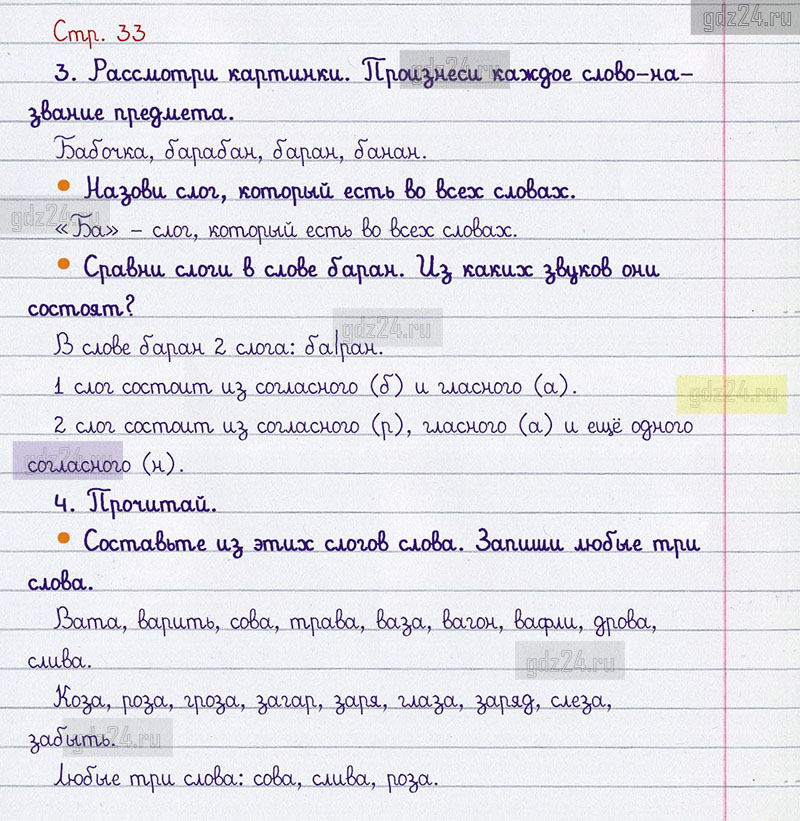 gdz24.ru
Стр. 33
gdz24.ru
3. Рассмотри картинки. Произнеси каждое слово-на-
звание предмета.
Бабочка, барабан, баран, банан.
• Назови слог, который есть во всех словах.
gdz24.ru
«Ба» – слог, который есть во всех словах.
• Сравни слоги в слове баран. Из каких звуков они
состоят?
gdz24.ru
В слове баран 2 слога: ба|ран.
1 слог состоит из согласного (б) и гласного (а).
gdz24.ru
2 слог состоит из согласного (р), гласного (а) и ещё одного
gdz24.ru
согласного (н).
4. Прочитай.
• Составьте из этих слогов слова. Запиши любые три
слова.
Вата, варить, сова, трава, ваза, вагон, вафли, дрова,
слива.
gdz24.ru
Коза, роза, гроза, загар, заря, глаза, заряд, слеза,
забыть.
gdz24.ru
Любые три слова: сова, слива, роза.